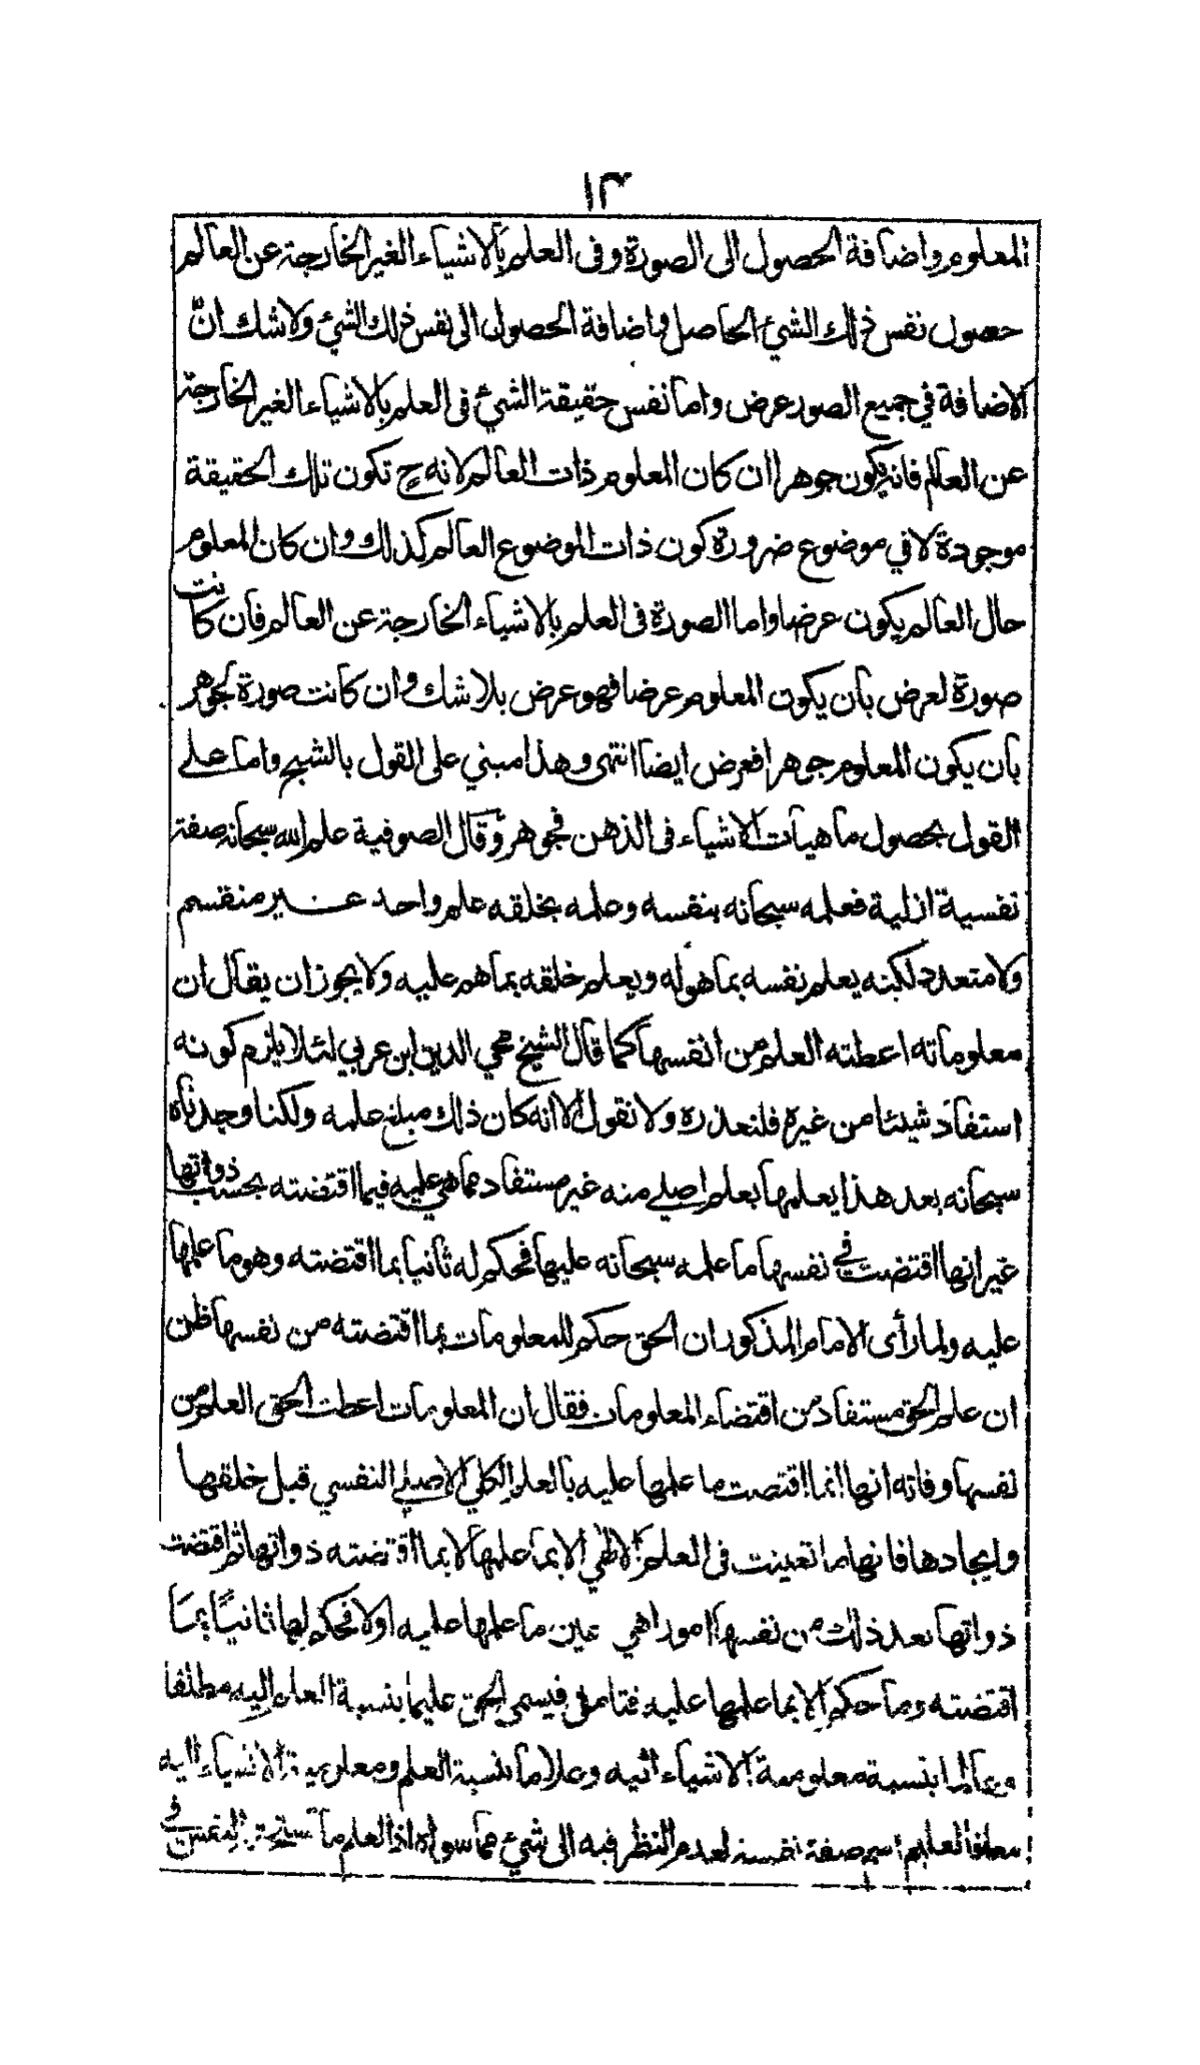 ١٣
المعلوم واضافة الحصول الى الصورة وفى العلم بالاشياء الغير الخارجة عن العالم
حصول نفس ذلك الشيء الحاصل واضافة الحصول الى نفس ذلك الشيء ولا شك انّ
الاضافة في جميع الصور عرض واما نفس حقيقة الشيء فى العلم بالاشياء الغير الخارجة
عن العالم فانه يكون جوهرا ان كان المعلوم ذات العالم لانه ح تكون تلك الحقيقة
موجودة لا في موضوع ضرورة كون ذات الموضوع العالم كذلك وان كان المعلوم
حال العالم يكون عرضا واما الصورة فى العلم بالاشياء الخارجة عن العالم فان كانت
صورة لعرض بان يكون المعلوم عرضا فهو عرض بلا شك وان كانت صورة لجوهر
بان يكون المعلوم جوهرا فعرض ايضا انتهى وهذا مبني على القول بالشبح واما على
القول بحصول ماهيات الاشياء فى الذهن فجوهر وقال الصوفية علم الله سبحانه صفة
نفسية ازلية فعلمه سبحانه بنفسه وعلمه بخلقه علم واحد غير منقسم
ولا متعدد لكنه يعلم نفسه بما هو له ويعلم خلقه بما هم عليه ولا يجوز ان يقال ان
معلوماته اعطته العلم من انفسها كما قال الشيخ محي الدين ابن عربي لئلا يلزم كونه
استفاد شيئا من غيره فلنعذره ولا نقول الا انه كان ذلك مبلغ علمه ولكنا وجدناه
سبحانه بعد هذا يعلمها بعلم اصلي منه غير مستفاد مما هي عليه فيما اقتضته بحسب ذواتها
غير انها اقتضت في نفسها ما علمه سبحانه عليها فحكم له ثانيا بما اقتضته وهو ما علمها
عليه ولما رأى الامام المذكور ان الحق حكم للمعلومات بما اقتضته من نفسها ظن
ان علم الحق مستفاد من اقتضاء المعلومات فقال ان المعلومات اعطت الحق العلم من
نفسها وفاته انها انما اقتضت ما علمها عليه بالعلم الكلي الاصلي النفسي قبل خلقها
وايجادها فانها ما تعينت فى العلم الالهي الا بما علمها لا بما اقتضته ذواتها ثم اقتضت
ذواتها بعد ذلك من نفسها امورا هي عين ما علمها عليه اولا فحكم لها ثانيًا بما
اقتضته وما حكم الا بما علمها عليه فتامل فيسمى الحق عليما بنسبة العلم اليه مطلقا
وعالما بنسبة معلومية الاشياء اليه وعلاما بنسبة العلم ومعلومية الاشياء اليه
معا فالعليم اسم صفة نفسية لعدم النظر فيه الى شيء مما سواه اذ العلم ما النفس في